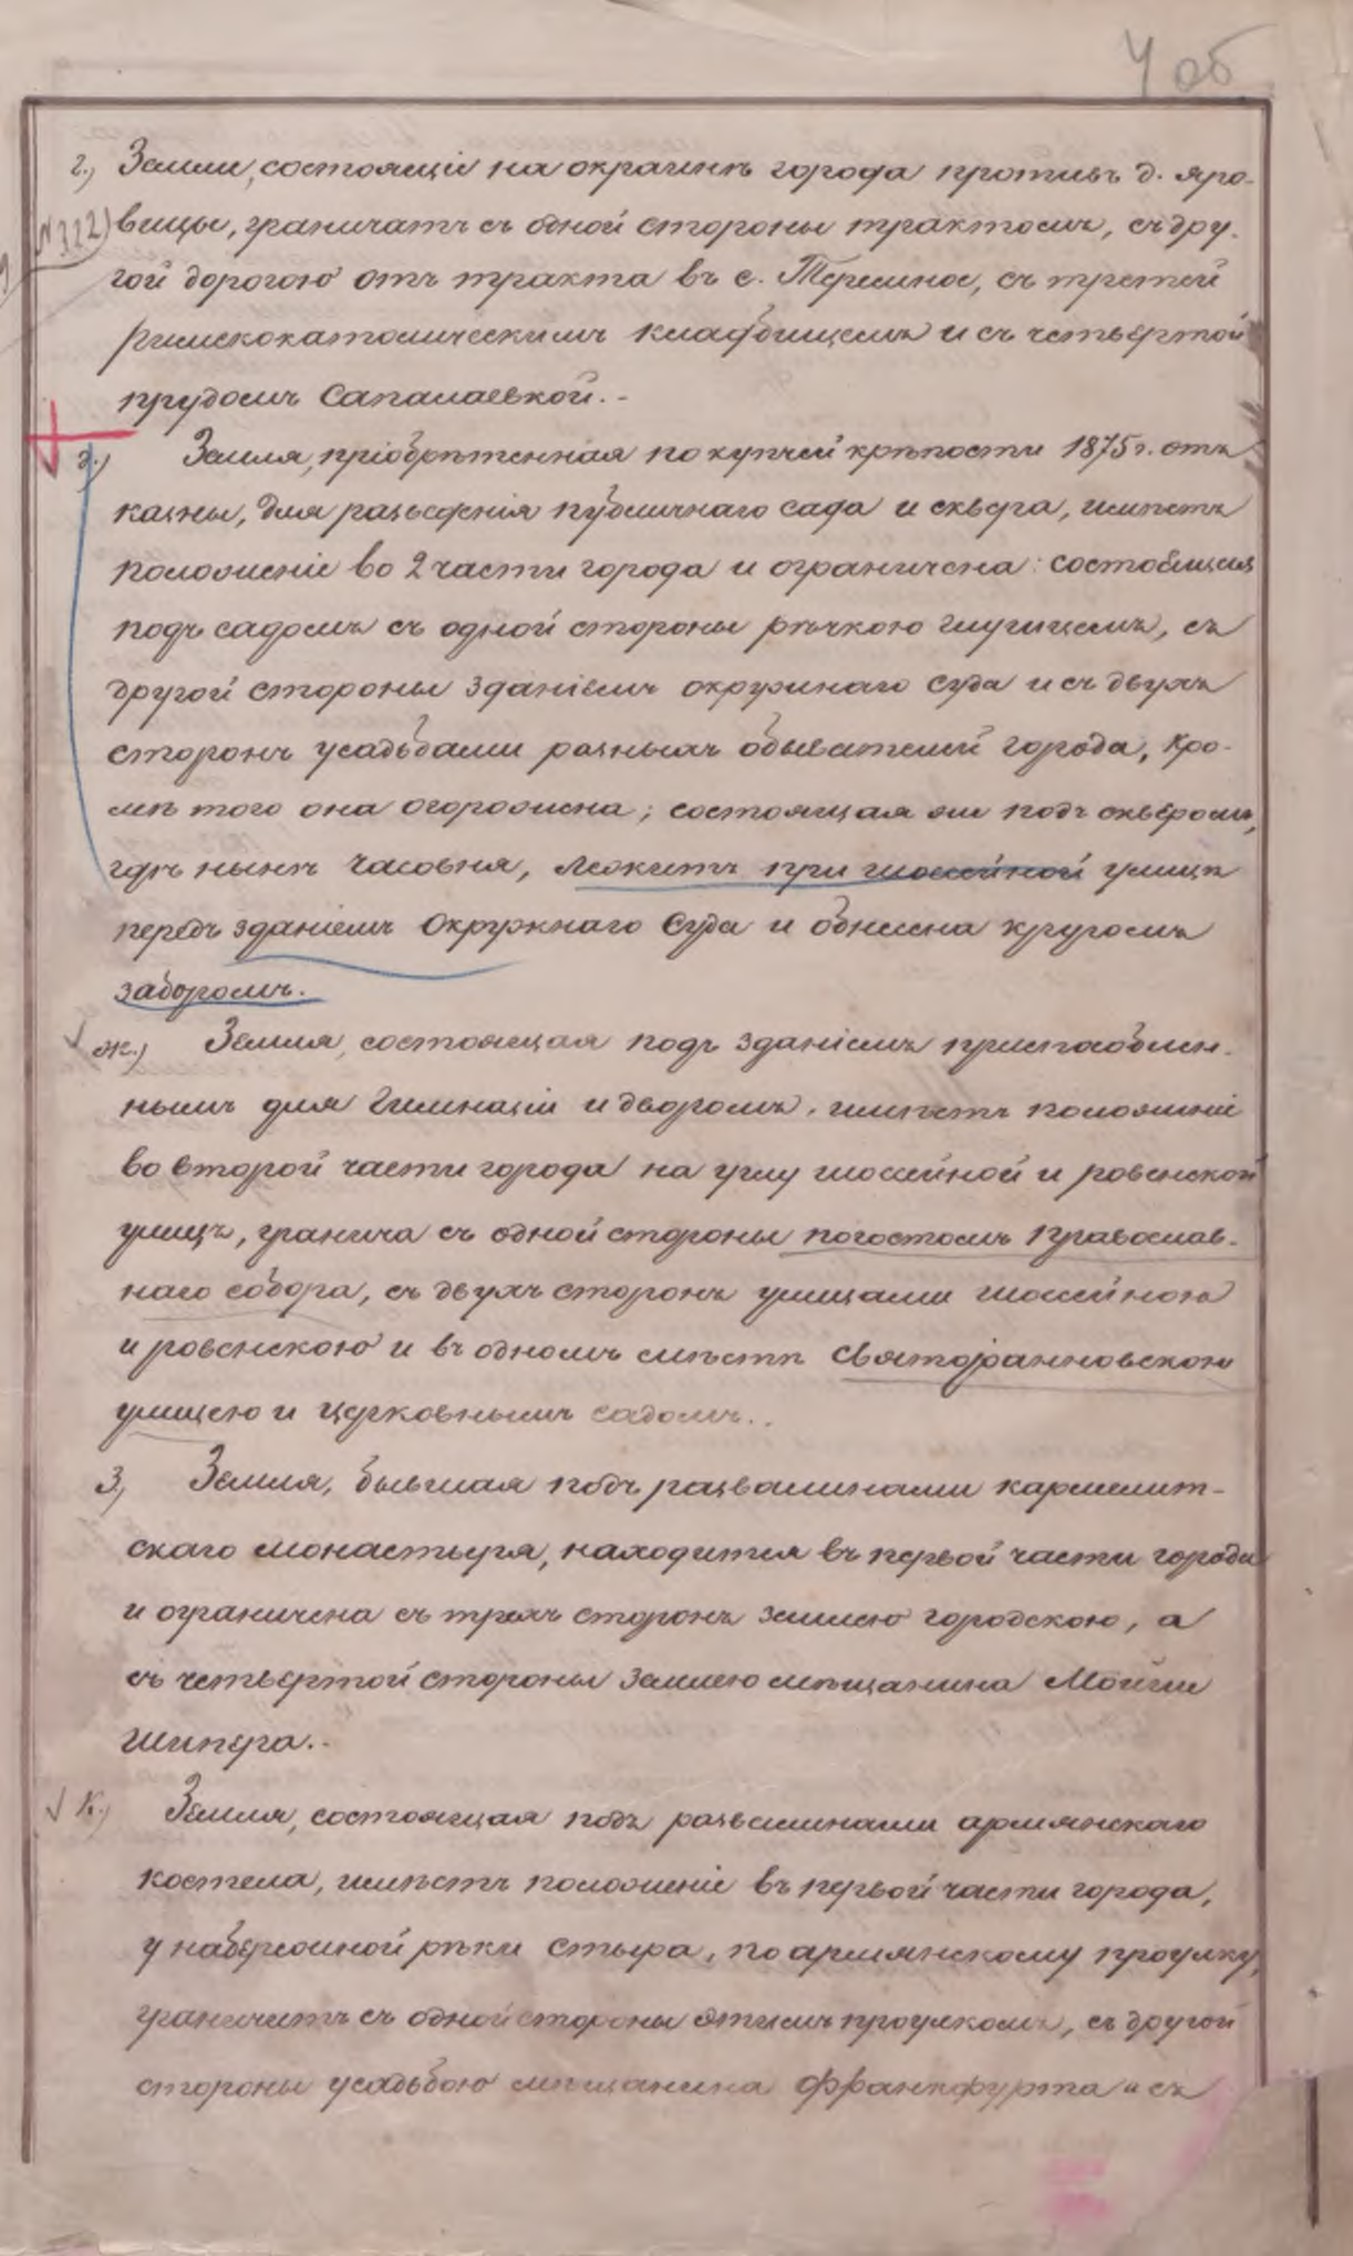 4 об
г.) Земли, состоящіе на окраинѣ города противъ д. Яро-
(N 322) вицы, граничатъ съ одной стороны трактомъ, съ дру-
гой дорогою отъ тракта въ с. Теремное, съ третей
римскокатолическимъ кладбищемъ и съ четвертой
прудомъ Сапалаевкой.-
Земля, пріобрѣтенная по купчей крѣпости 1875 г. отъ
казны, для разведенія публичнаго сада и сквера, имѣетъ
положеніе во 2 части города и ограничена: состоящая
подъ садомъ съ одной стороны рѣчкою Глушцемъ, съ
другой стороны зданіемъ окружнаго суда и съ двухъ
сторонъ усадьбами разныхъ обывателей города, кро-
мѣ того она огорожена; состоящая же подъ скверомъ,
гдѣ нынѣ часовня, лежитъ при шоссейной улицѣ
передъ зданіемъ Окружнаго Суда и обнесена кругомъ
заборомъ.
ж.) Земля, состоящая подъ зданіемъ приспособлен-
нымъ для Гимназіи и дворомъ, имѣетъ положеніе
во второй части города на углу шоссейной и ровенской
улицъ, гранича съ одной стороны погостомъ Православ-
наго собора, съ двухъ сторонъ улицами шоссейною
и ровенскою и въ одномъ мѣстѣ Святоіоанновскою
улицею и церковнымъ садомъ..
З.) Земля, бывшая подъ развалинами кармелит-
скаго монастыря, находится въ первой части города
и ограничена съ трехъ сторонъ землею городскою, а
съ четвертой стороны землею мѣщанина Мошки
Шипера.-
К.) Земля, состоящая подъ развалинами армянскаго
костела, имѣетъ положеніе въ первой части города,
у набережной рѣки Стыра, по армянскому проулку,
граничитъ съ одной стороны этимъ проулкомъ, съ другой
стороны усадьбою мѣщанина Франкфурта и съ